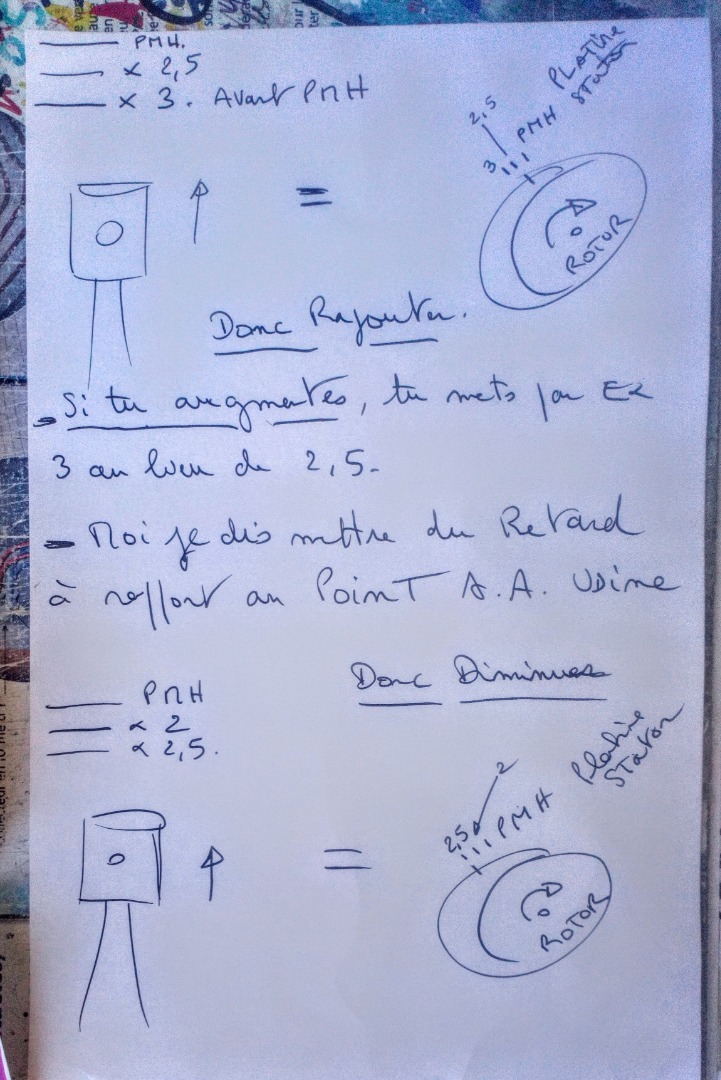 PMH.
x 2,5
x 3. Avant PMH
PLATINE
Stator
2,5
PMH
3
=
ROTOR
Donc Rajouter.
- Si tu augmentes, tu mets par Ex
3 au lieu de 2,5.
- Moi je dis mettre du Retard
à rapport au Point A.A. Usine
Donc Diminuer
PMH
x 2
x 2,5.
Platine
Stator
2
2,5
PMH
=
ROTOR